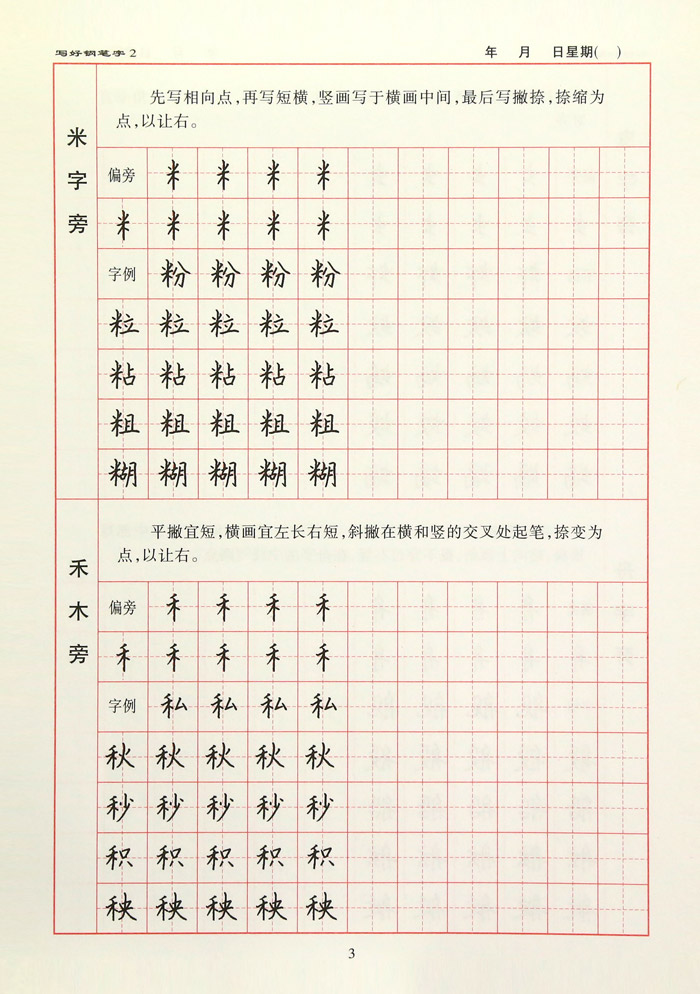 写好钢笔字 2 年 月 日星期( )
米字旁
先写相向点,再写短横,竖画写于横画中间,最后写撇捺,捺缩为
点,以让右。
偏旁 米 米 米 米
米 米 米 米 米
字例 粉 粉 粉 粉
粒 粒 粒 粒 粒
粘 粘 粘 粘 粘
粗 粗 粗 粗 粗
糊 糊 糊 糊 糊
禾木旁
平撇宜短,横画宜左长右短,斜撇在横和竖的交叉处起笔,捺变为
点,以让右。
偏旁 禾 禾 禾 禾
禾 禾 禾 禾 禾
字例 私 私 私 私
秋 秋 秋 秋 秋
秒 秒 秒 秒 秒
积 积 积 积 积
秧 秧 秧 秧 秧
3